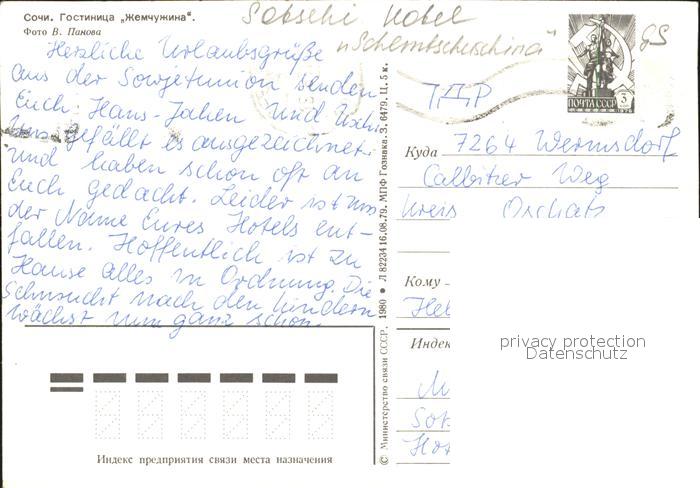 Сочи. Гостиница „Жемчужина“.
Фото В. Панова
Sotschi Hotel
„Schemtschuschina“
Herzliche Urlaubsgrüße
aus der Sowjetunion senden
Euch Hans-Jochen und Uschi.
Uns gefällt es ausgezeichnet
und haben schon oft an
Euch gedacht. Leider ist uns
der Name Eures Hotels ent-
fallen. Hoffentlich ist zu
Hause alles in Ordnung. Die
Sehnsucht nach den Kindern
wächst nun ganz schön.
Индекс предприятия связи места назначения
© Министерство связи СССР, 1980 ● Л 82234 16.08.79. МПФ Гознака. З. 6479. Ц. 5 к.
ПОЧТА СССР 3
GS
ГДР
Куда 7264 Wermsdorf
Calbitzer Weg
Kreis Oschatz
Кому
Индек
privacy protection
Datenschutz